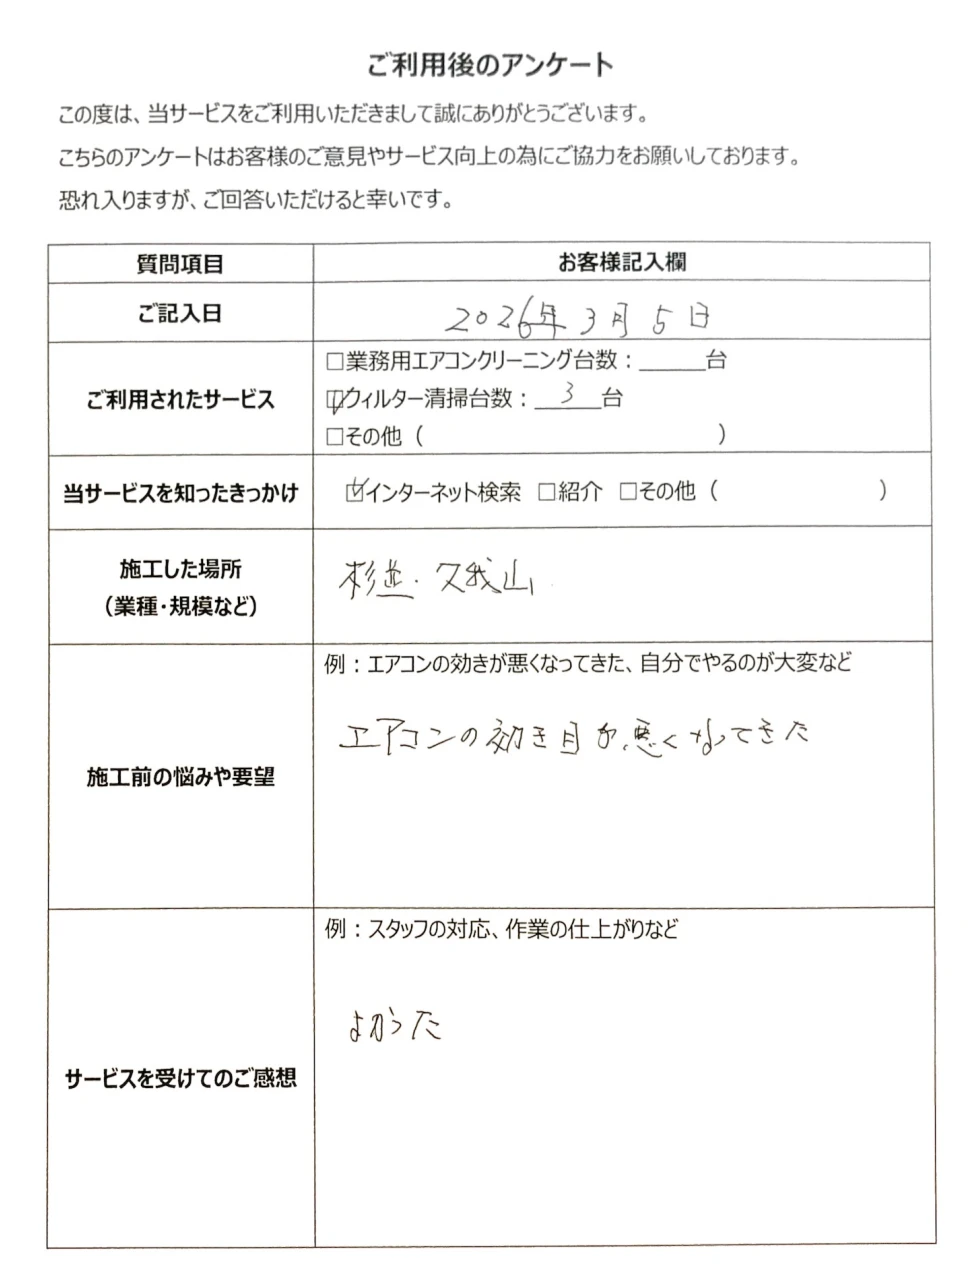 ご利用後のアンケート
この度は、当サービスをご利用いただきまして誠にありがとうございます。
こちらのアンケートはお客様のご意見やサービス向上の為にご協力をお願いしております。
恐れ入りますが、ご回答いただけると幸いです。
質問項目
お客様記入欄
ご記入日
2026年3月5日
ご利用されたサービス
□業務用エアコンクリーニング台数：_____台
☑フィルター清掃台数：__3__台
□その他（　　　　　　　　　　　　　　　）
当サービスを知ったきっかけ
☑インターネット検索 □紹介 □その他（　　　　　　　　）
施工した場所
（業種・規模など）
杉並・久我山
施工前の悩みや要望
例：エアコンの効きが悪くなってきた、自分でやるのが大変など
エアコンの効き目が悪くなってきた
サービスを受けてのご感想
例：スタッフの対応、作業の仕上がりなど
よかった